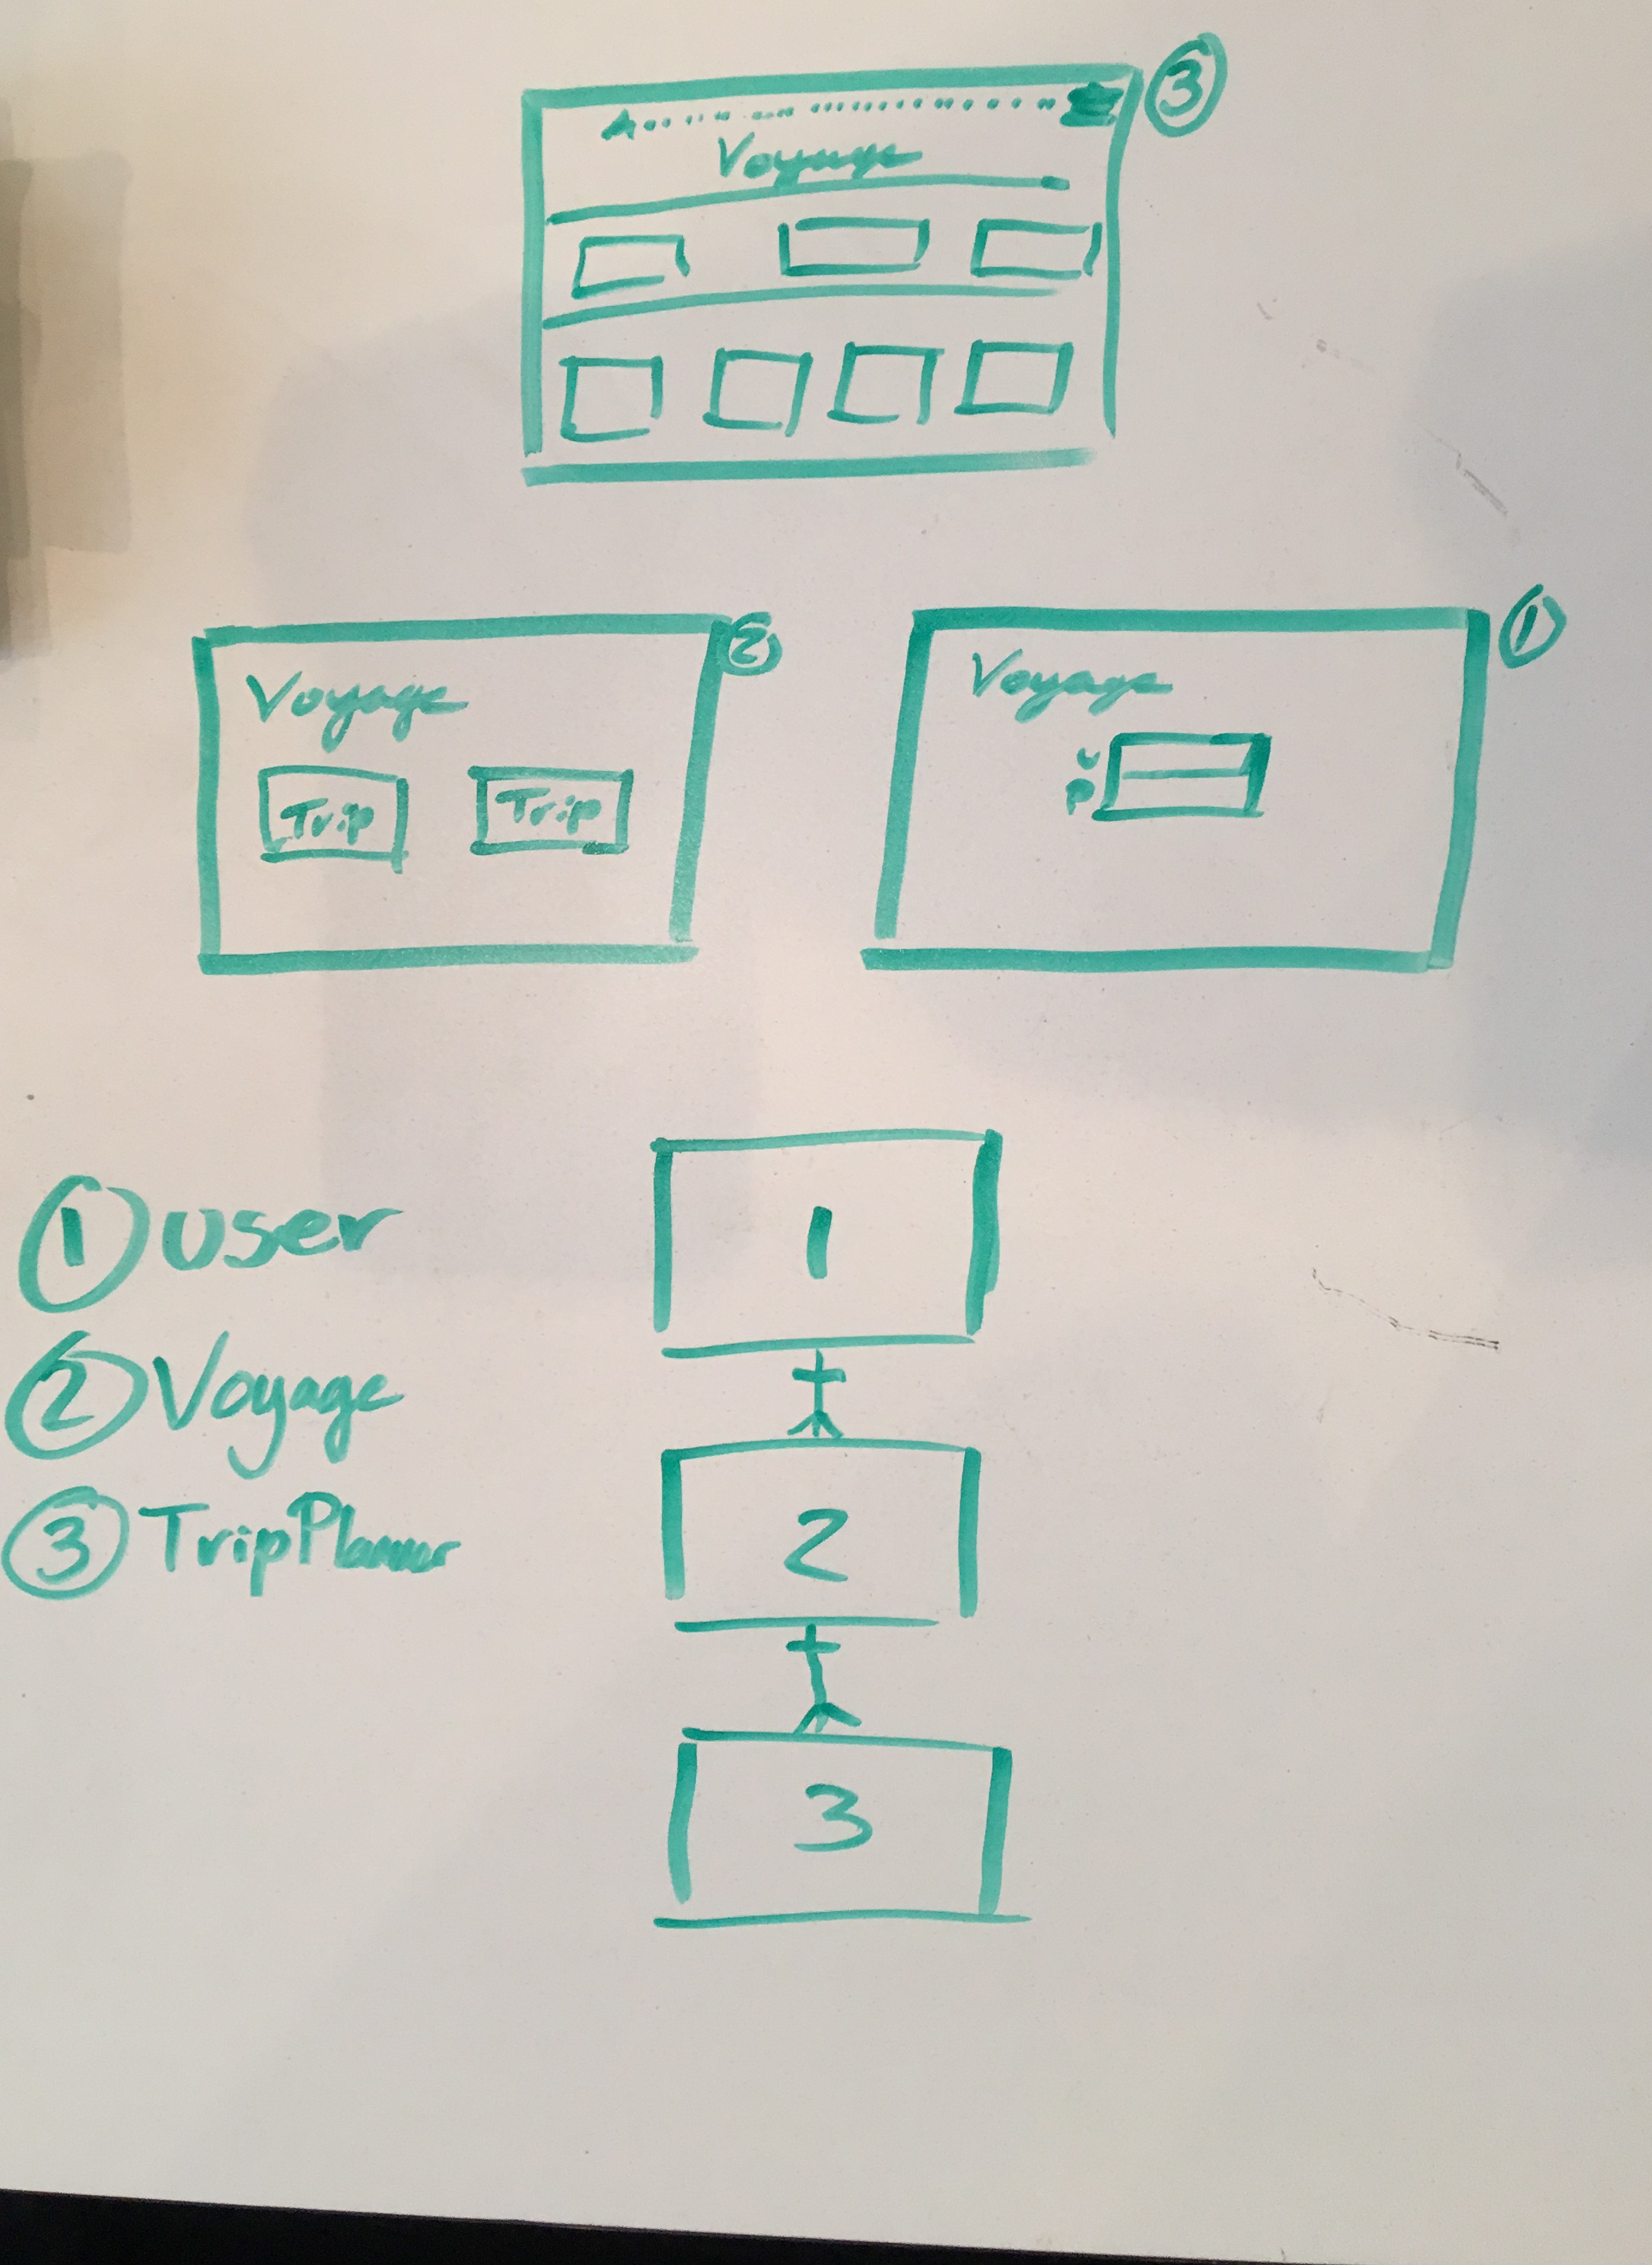 3
Voyage
2
Voyage
Trip Trip
1
Voyage
U
P
1 User
2 Voyage
3 TripPlanner
1
2
3